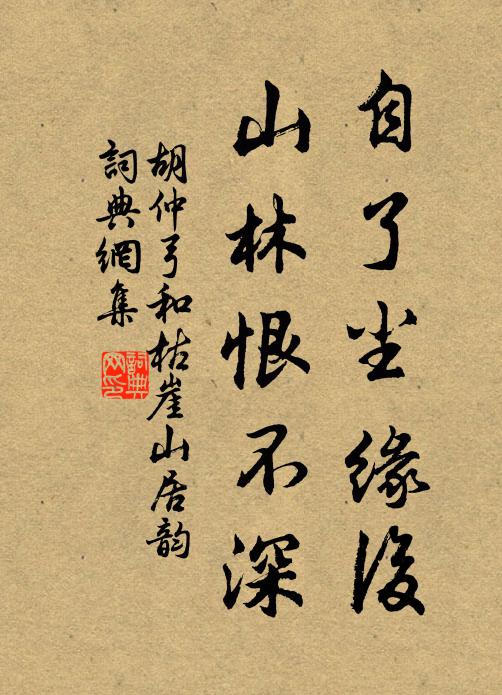 自了尘缘後
山林恨不深
胡仲弓和枯崖山居韵
詞典網集
詞典网印